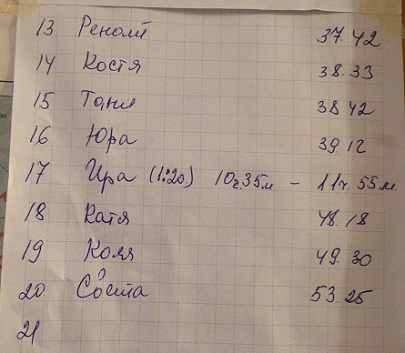 13 Ренат 37.42
14 Костя 38.33
15 Таня 38 42
16 Юра 39.12
17 Ира (1:20) 10ч.35м - 11ч.55м.
18 Катя 48.18
19 Коля 49.30
20 53.25
21